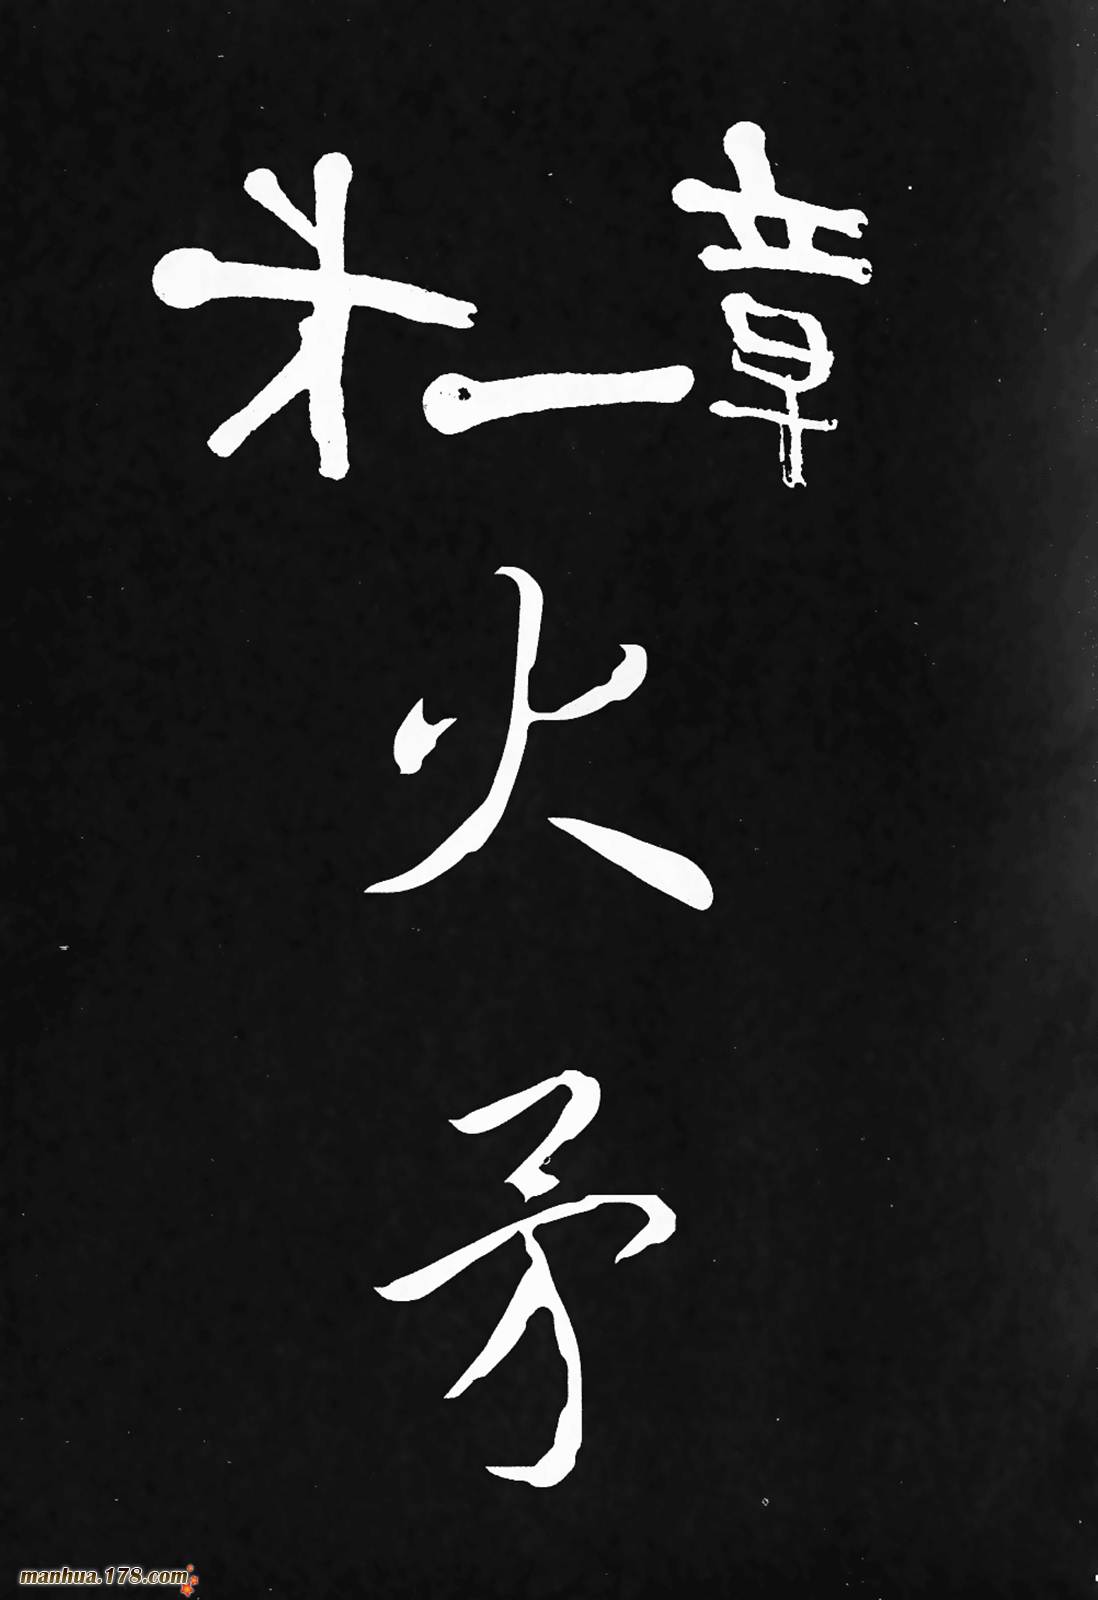 第一章
火矛
manhua.178.com